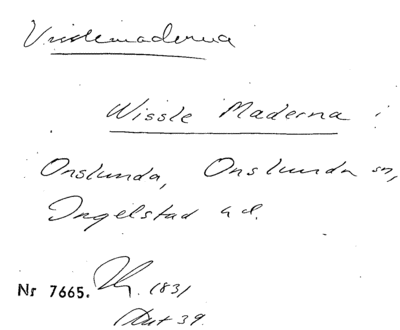 Visslemaderna
Wissle Maderna :
Onslunda, Onslunda sn,
Ingelstad hd.
Nr 7665. 1831
Akt 39.